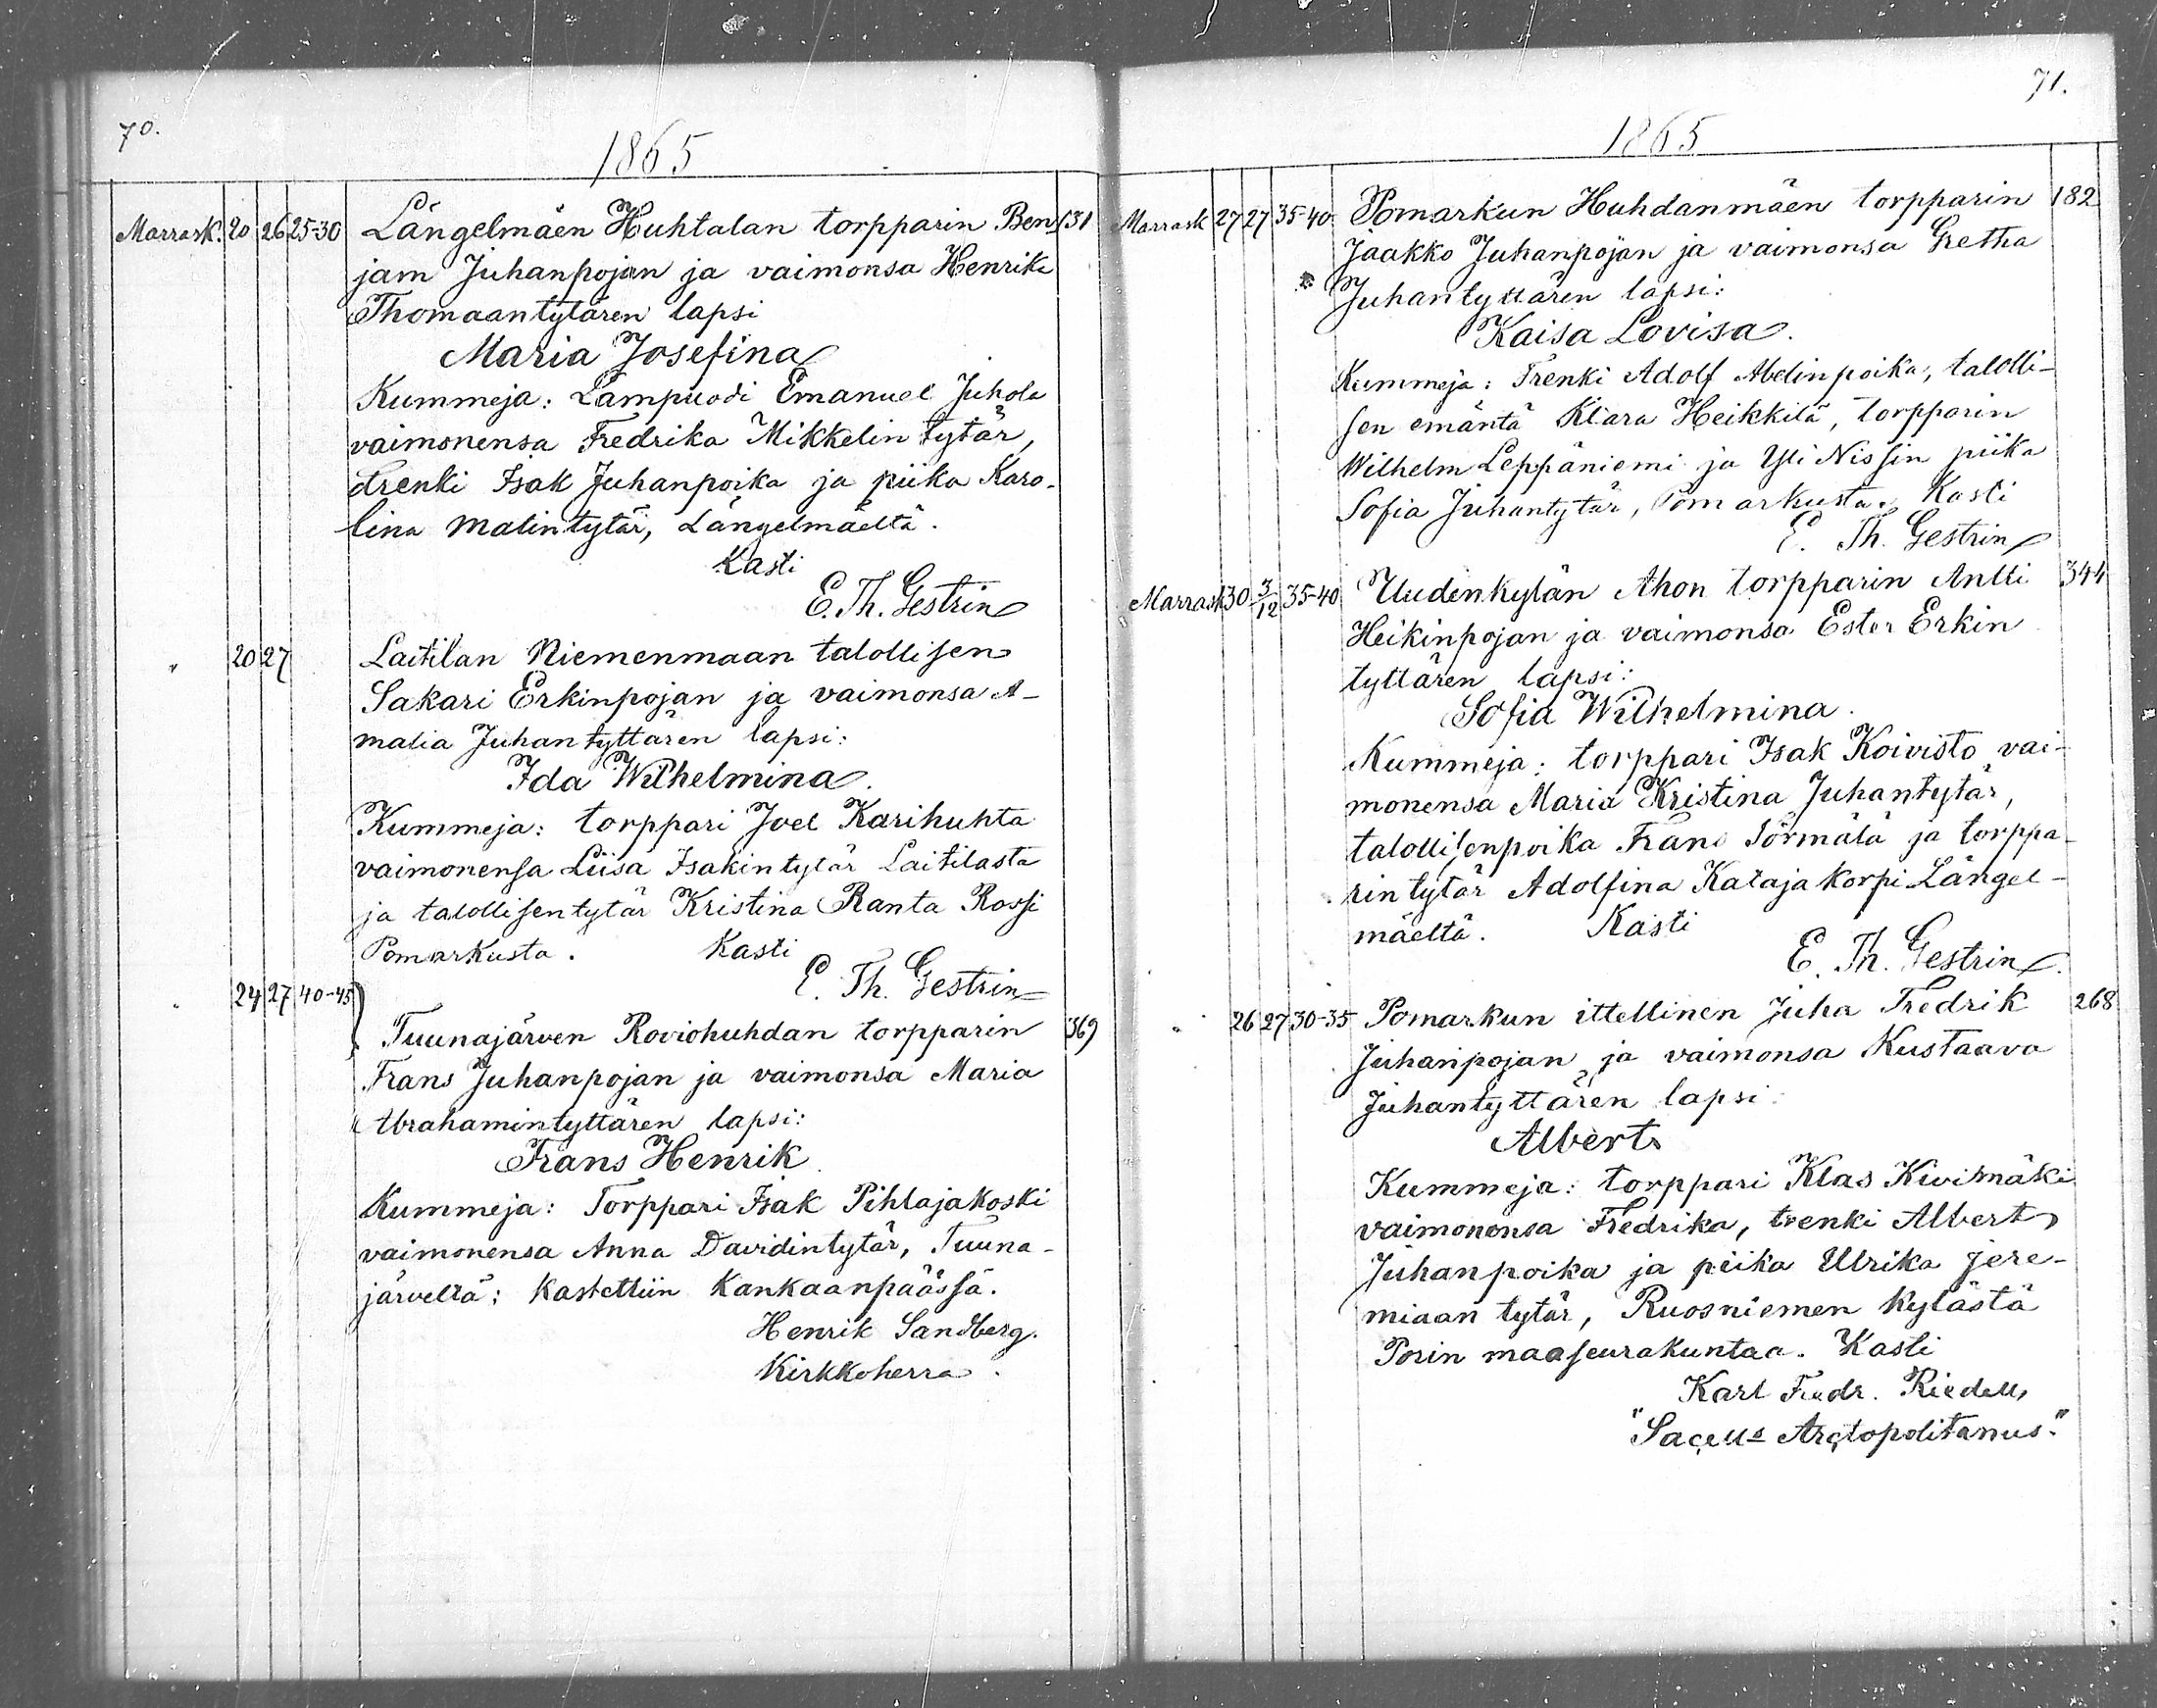 70.
1865
Marrask. 20 26 25-30 Längelmäen Huhtalan torpparin Ben- 131
jam Juhanpojan ja vaimonsa Henrika
Thomaantytären lapsi
Maria Josefina
Kummeja: Lampuodi Emanuel Juhola
vaimonensa Fredrika Mikkelin tytär,
drenki Isak Juhanpoika ja piika Karo-
lina Malintytär, Längelmäeltä.
Kasti
E. Th. Gestrin
" 20 27 Laitilan Niemenmaan talollisen
Sakari Erkinpojan ja vaimonsa A-
malia Juhantyttären lapsi:
Ida Wilhelmina.
Kummeja: torppari Joel Karihuhta
vaimonensa Liisa Isakintytär Laitilasta
ja talollisentytär Kristina Ranta Rossi
Pomarkusta. Kasti
E. Th. Gestrin
" 24 27 40-45 Tuunajärven Roviohuhdan torpparin 369
Frans Juhanpojan ja vaimonsa Maria
Abrahamintyttären lapsi:
Frans Henrik.
Kummeja: Torppari Isak Pihlajakoski
vaimonensa Anna Davidintytär, Tuuna-
järveltä; Kastettiin Kankaanpäässä.
Henrik Sandberg.
Kirkkoherra.
71.
1865
Marrask 27 27 35-40 Pomarkun Huhdanmäen torpparin 182
Jaakko Juhanpojan ja vaimonsa Gretha
Juhantyttären lapsi:
Kaisa Lovisa.
Kummeja: Trenki Adolf Abelinpoika, talolli-
sen emäntä Klara Heikkilä, torpparin
Wilhelm Leppäniemi ja Yli Nissin piika
Sofia Juhantytär, Pomarkusta. Kasti
E. Th. Gestrin
Marrask 30 3/12 35-40 Uudenkylän Ahon torpparin Antti 344
Heikinpojan ja vaimonsa Ester Erkin
tyttären lapsi:
Sofia Wilhelmina.
Kummeja: torppari Isak Koivisto vai-
monensa Maria Kristina Juhantytär,
talollisenpoika Frans Törmälä ja torppa-
rin tytär Adolfina Katajakorpi Längel-
mäeltä. Kasti
E. Th. Gestrin.
" 26 27 30-35 Pomarkun ittellinen Juha Fredrik 268
Juhanpojan ja vaimonsa Kustaava
Juhantyttären lapsi
Albert
Kummeja: torppari Klas Kivimäki
vaimonensa Fredrika, trenki Albert
Juhanpoika ja piika Ulrika Jere-
miaan tytär, Ruosniemen kylästä
Porin maaseurakuntaa. Kasti
Karl Fredr. Riedell,
"Sacells Arctopolitanus."